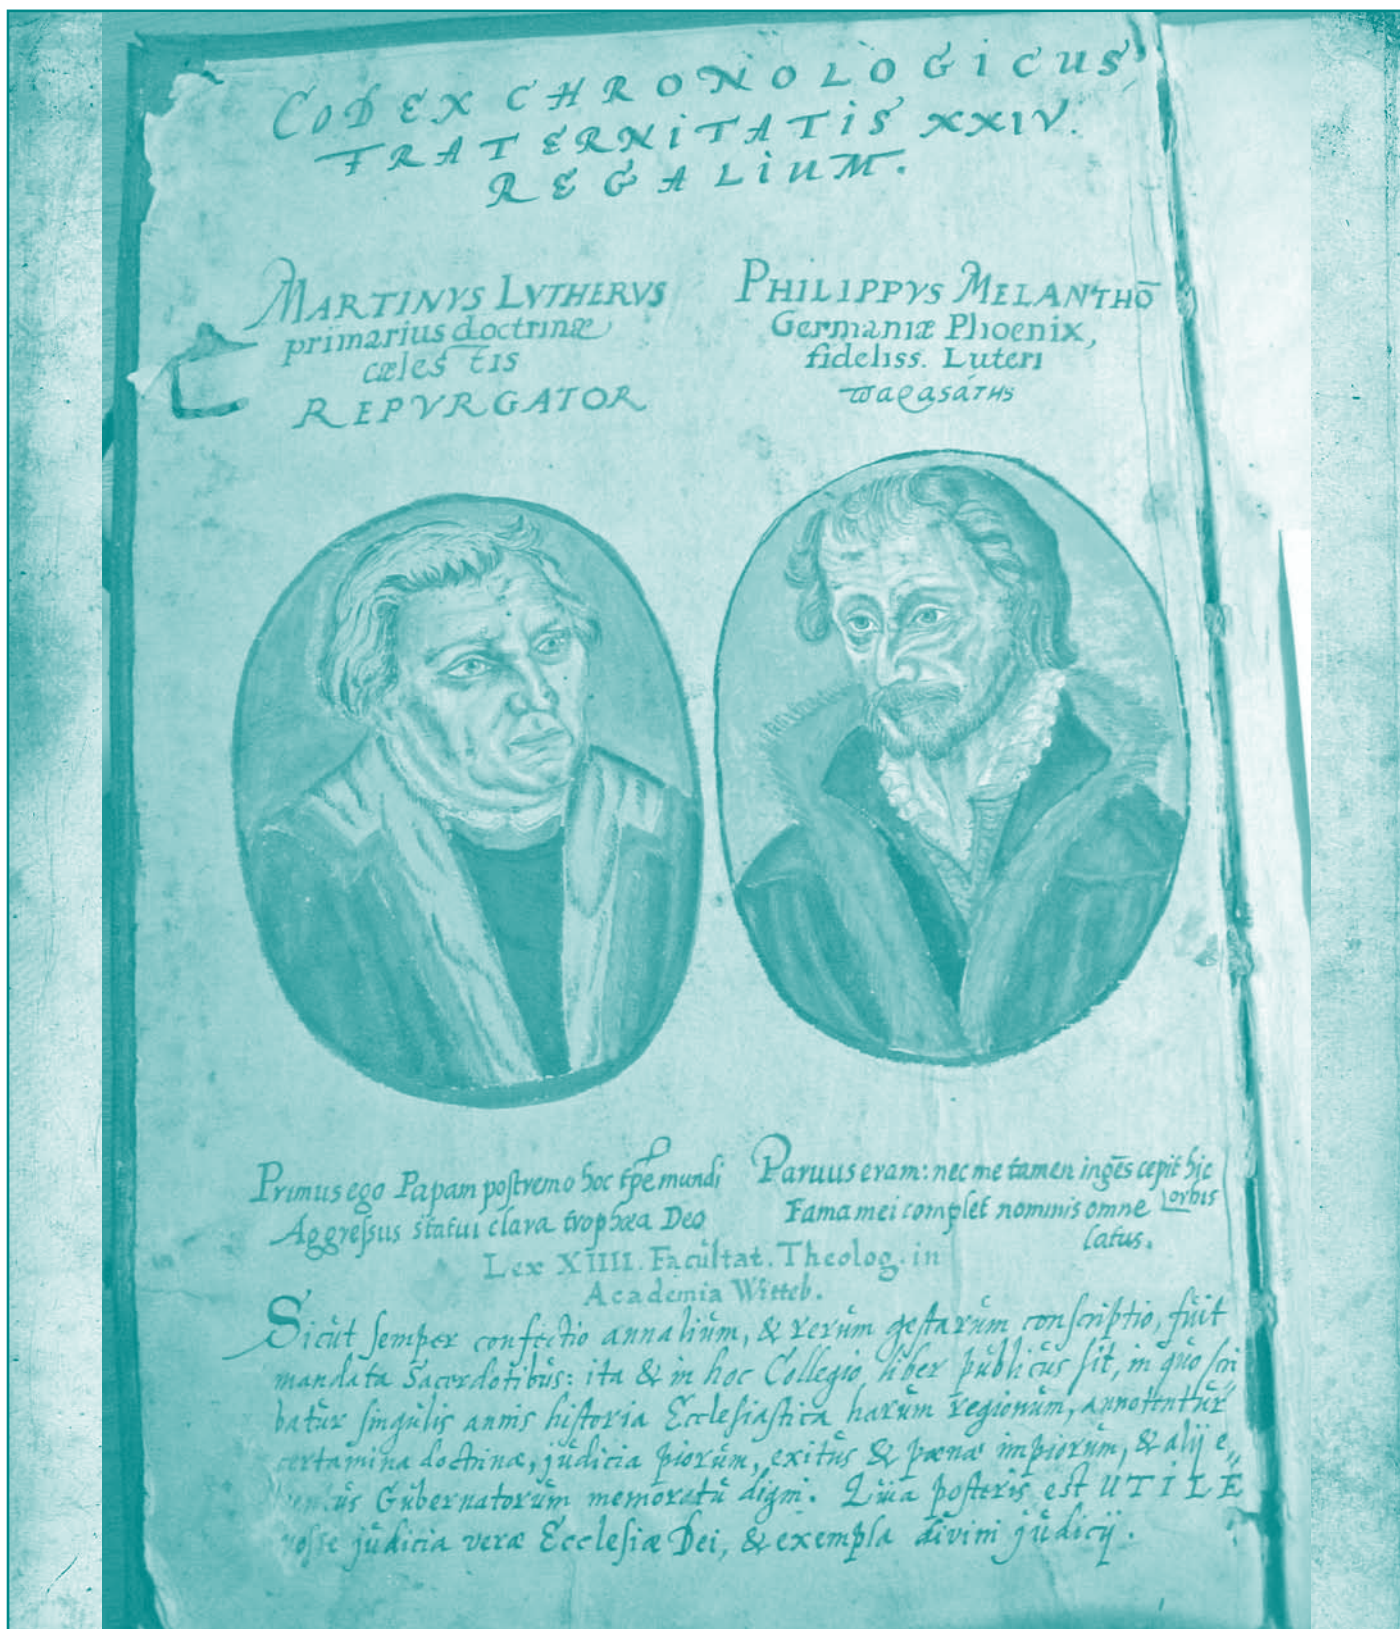 CODEX CHRONOLOGICUS
FRATERNITATIS XXIV.
REGALIUM.
MARTINVS LVTHERVS
primarius doctrinæ
cæles tis
REPVRGATOR
PHILIPPVS MELANTHŌ
Germaniæ Phoenix,
fideliss. Luteri
παραςάτης
Primus ego Papam poſtremo hoc tp̄e mundi
Aggreſsus statui clara trophæa Deo
Paruus eram: nec me tamen ingēs cepit hic
orbis
Fama mei complet nominis omne
latus.
Lex XIIII. Facultat. Theolog. in
Academia Witteb.
Sicut ſemper confectio annalium, & rerum geſtarum conſcriptio, fuit
mandata Sacerdotibus: ita & in hoc Collegio liber publicus ſit, in quo ſcri
batur ſingulis annis hiſtoria Eccleſiaſtica harum regionum, annotentur
certamina doctrinæ, judicia piorum, exitus & pœnæ impiorum, & alij e„
us Gubernatorum memoratu digni. Quia poſteris est UTILE
noſse judicia veræ Eccleſiæ Dei, & exempla divini judicij.